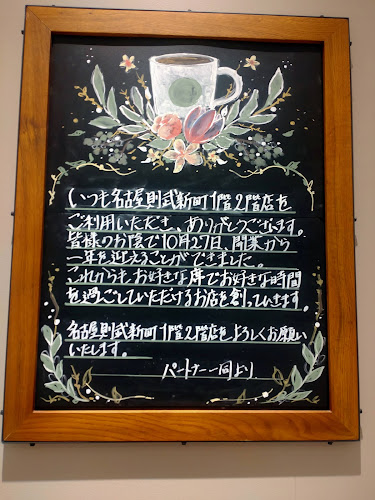 いつも名古屋則武新町1階2階店を
ご利用いただき、ありがとうございます。
皆様のお陰で10月27日、開業から
一年を迎えることができました。
これからも、お好きな席でお好きな時間
を過ごしていただけるお店を創っていきます。
名古屋則武新町1階2階店をよろしくお願い
いたします。
パートナー一同より